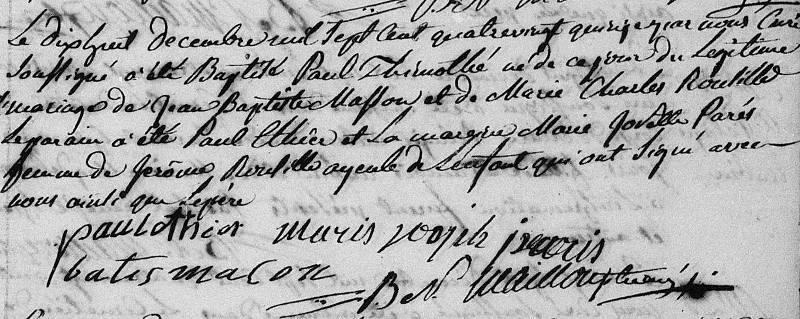 Le dixhuit decembre mil sept cent quatrevingt quinze par nous Curé
soussigné a été Baptisé Paul Thimothé né de ce jour du Legitime
mariage de Jean Baptiste Masson et de Marie Charles Routille
Le parain a été Paul Ethier et La maraine Marie Joseffe Parés
femme de Jerôme Routille ayeule de Lenfant qui ont signé avec
nous ainsi que Lepére
paul ethier maris josph paris
batis macon
B N Mailloux